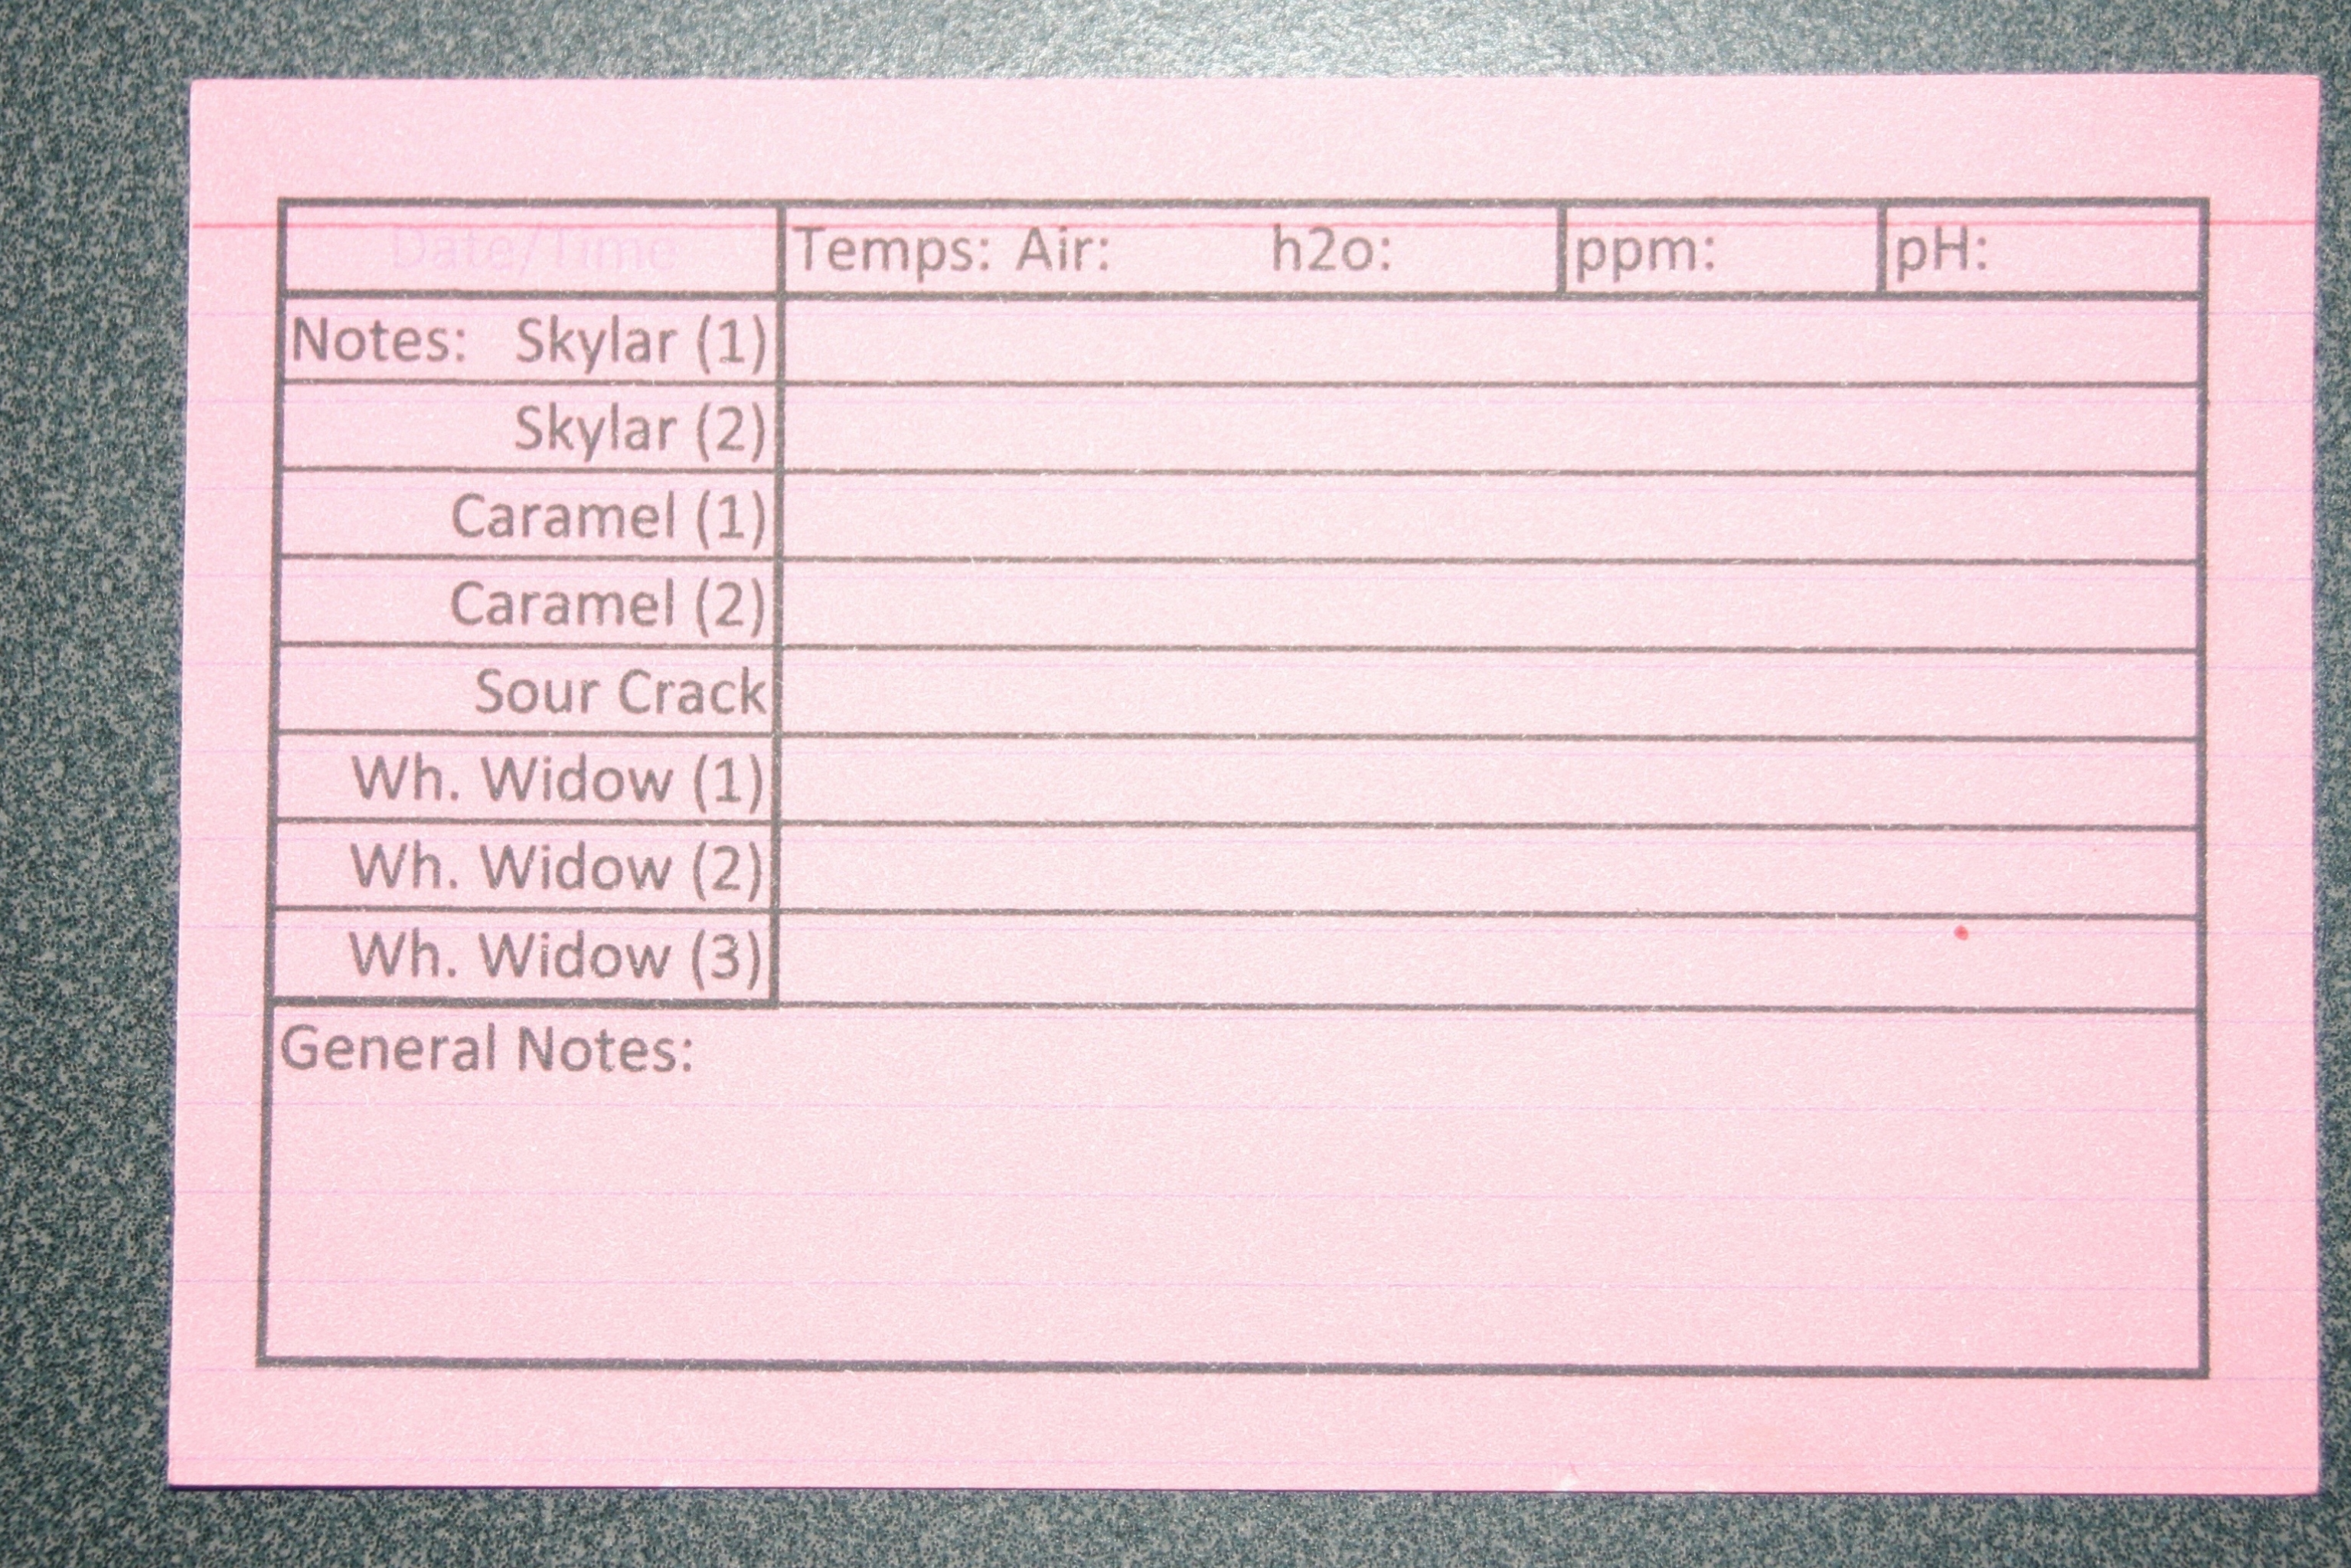 Date/Time Temps: Air: h2o: ppm: pH:
Notes: Skylar (1)
Skylar (2)
Caramel (1)
Caramel (2)
Sour Crack
Wh. Widow (1)
Wh. Widow (2)
Wh. Widow (3)
General Notes: